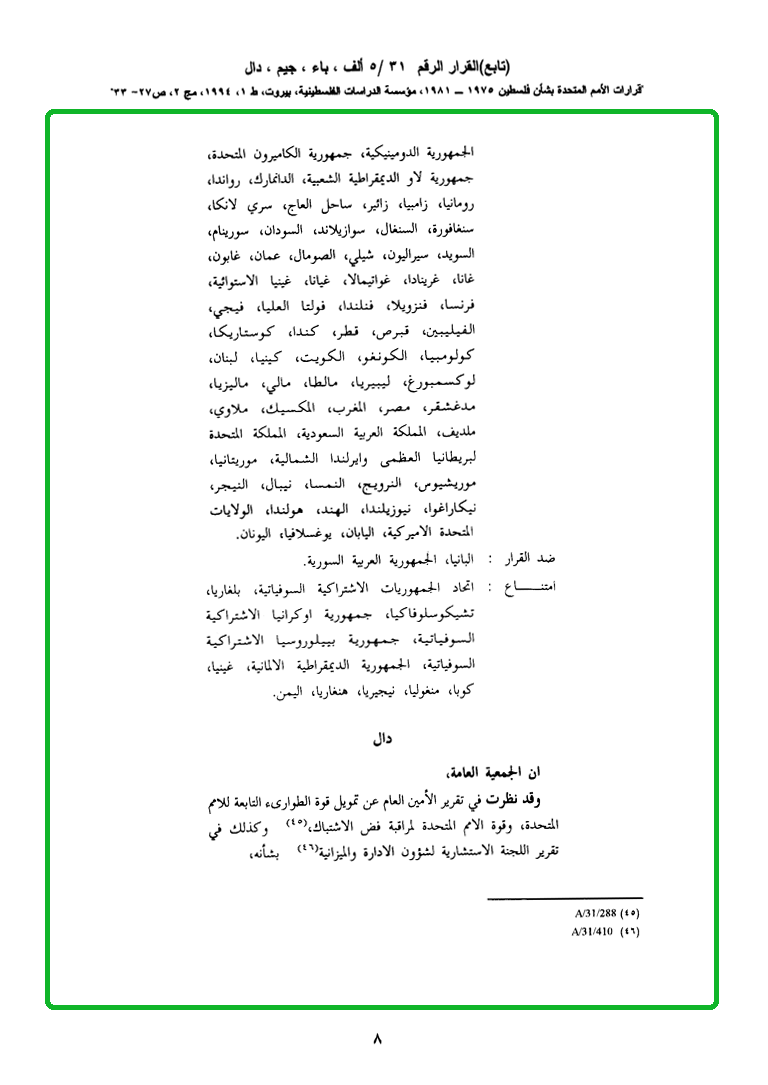 (تابع)القرار الرقم ٣١ /٥ ألف ، باء ، جيم ، دال
"قرارات الأمم المتحدة بشأن فلسطين ١٩٧٥ ــ ١٩٨١، مؤسسة الدراسات الفلسطينية، بيروت، ط ١، ١٩٩٤، مج ٢، ص٢٧- ٣٣"
الجمهورية الدومينيكية، جمهورية الكاميرون المتحدة،
جمهورية لاو الديمقراطية الشعبية، الدانمارك، رواندا،
رومانيا، زامبيا، زائير، ساحل العاج، سري لانكا،
سنغافورة، السنغال، سوازيلاند، السودان، سورينام،
السويد، سيراليون، شيلي، الصومال، عمان، غابون،
غانا، غرينادا، غواتيمالا، غيانا، غينيا الاستوائية،
فرنسا، فنزويلا، فنلندا، فولتا العليا، فيجي،
الفيليبين، قبرص، قطر، كندا، كوستاريكا،
كولومبيا، الكونغو، الكويت، كينيا، لبنان،
لوكسمبورغ، ليبيريا، مالطا، مالي، ماليزيا،
مدغشقر، مصر، المغرب، المكسيك، ملاوي،
ملديف، المملكة العربية السعودية، المملكة المتحدة
لبريطانيا العظمى وايرلندا الشمالية، موريتانيا،
موريشيوس، النرويج، النمسا، نيبال، النيجر،
نيكاراغوا، نيوزيلندا، الهند، هولندا، الولايات
المتحدة الاميركية، اليابان، يوغسلافيا، اليونان.
ضد القرار : البانيا، الجمهورية العربية السورية.
امتنــــاع : اتحاد الجمهوريات الاشتراكية السوفياتية، بلغاريا،
تشيكوسلوفاكيا، جمهورية اوكرانيا الاشتراكية
السوفياتية، جمهورية بييلوروسيا الاشتراكية
السوفياتية، الجمهورية الديمقراطية الالمانية، غينيا،
كوبا، منغوليا، نيجيريا، هنغاريا، اليمن.
دال
ان الجمعية العامة،
وقد نظرت في تقرير الأمين العام عن تمويل قوة الطوارىء التابعة للامم
المتحدة، وقوة الامم المتحدة لمراقبة فض الاشتباك،(٤٥) وكذلك في
تقرير اللجنة الاستشارية لشؤون الادارة والميزانية(٤٦) بشأنه،
(٤٥) A/31/288
(٤٦) A/31/410
٨